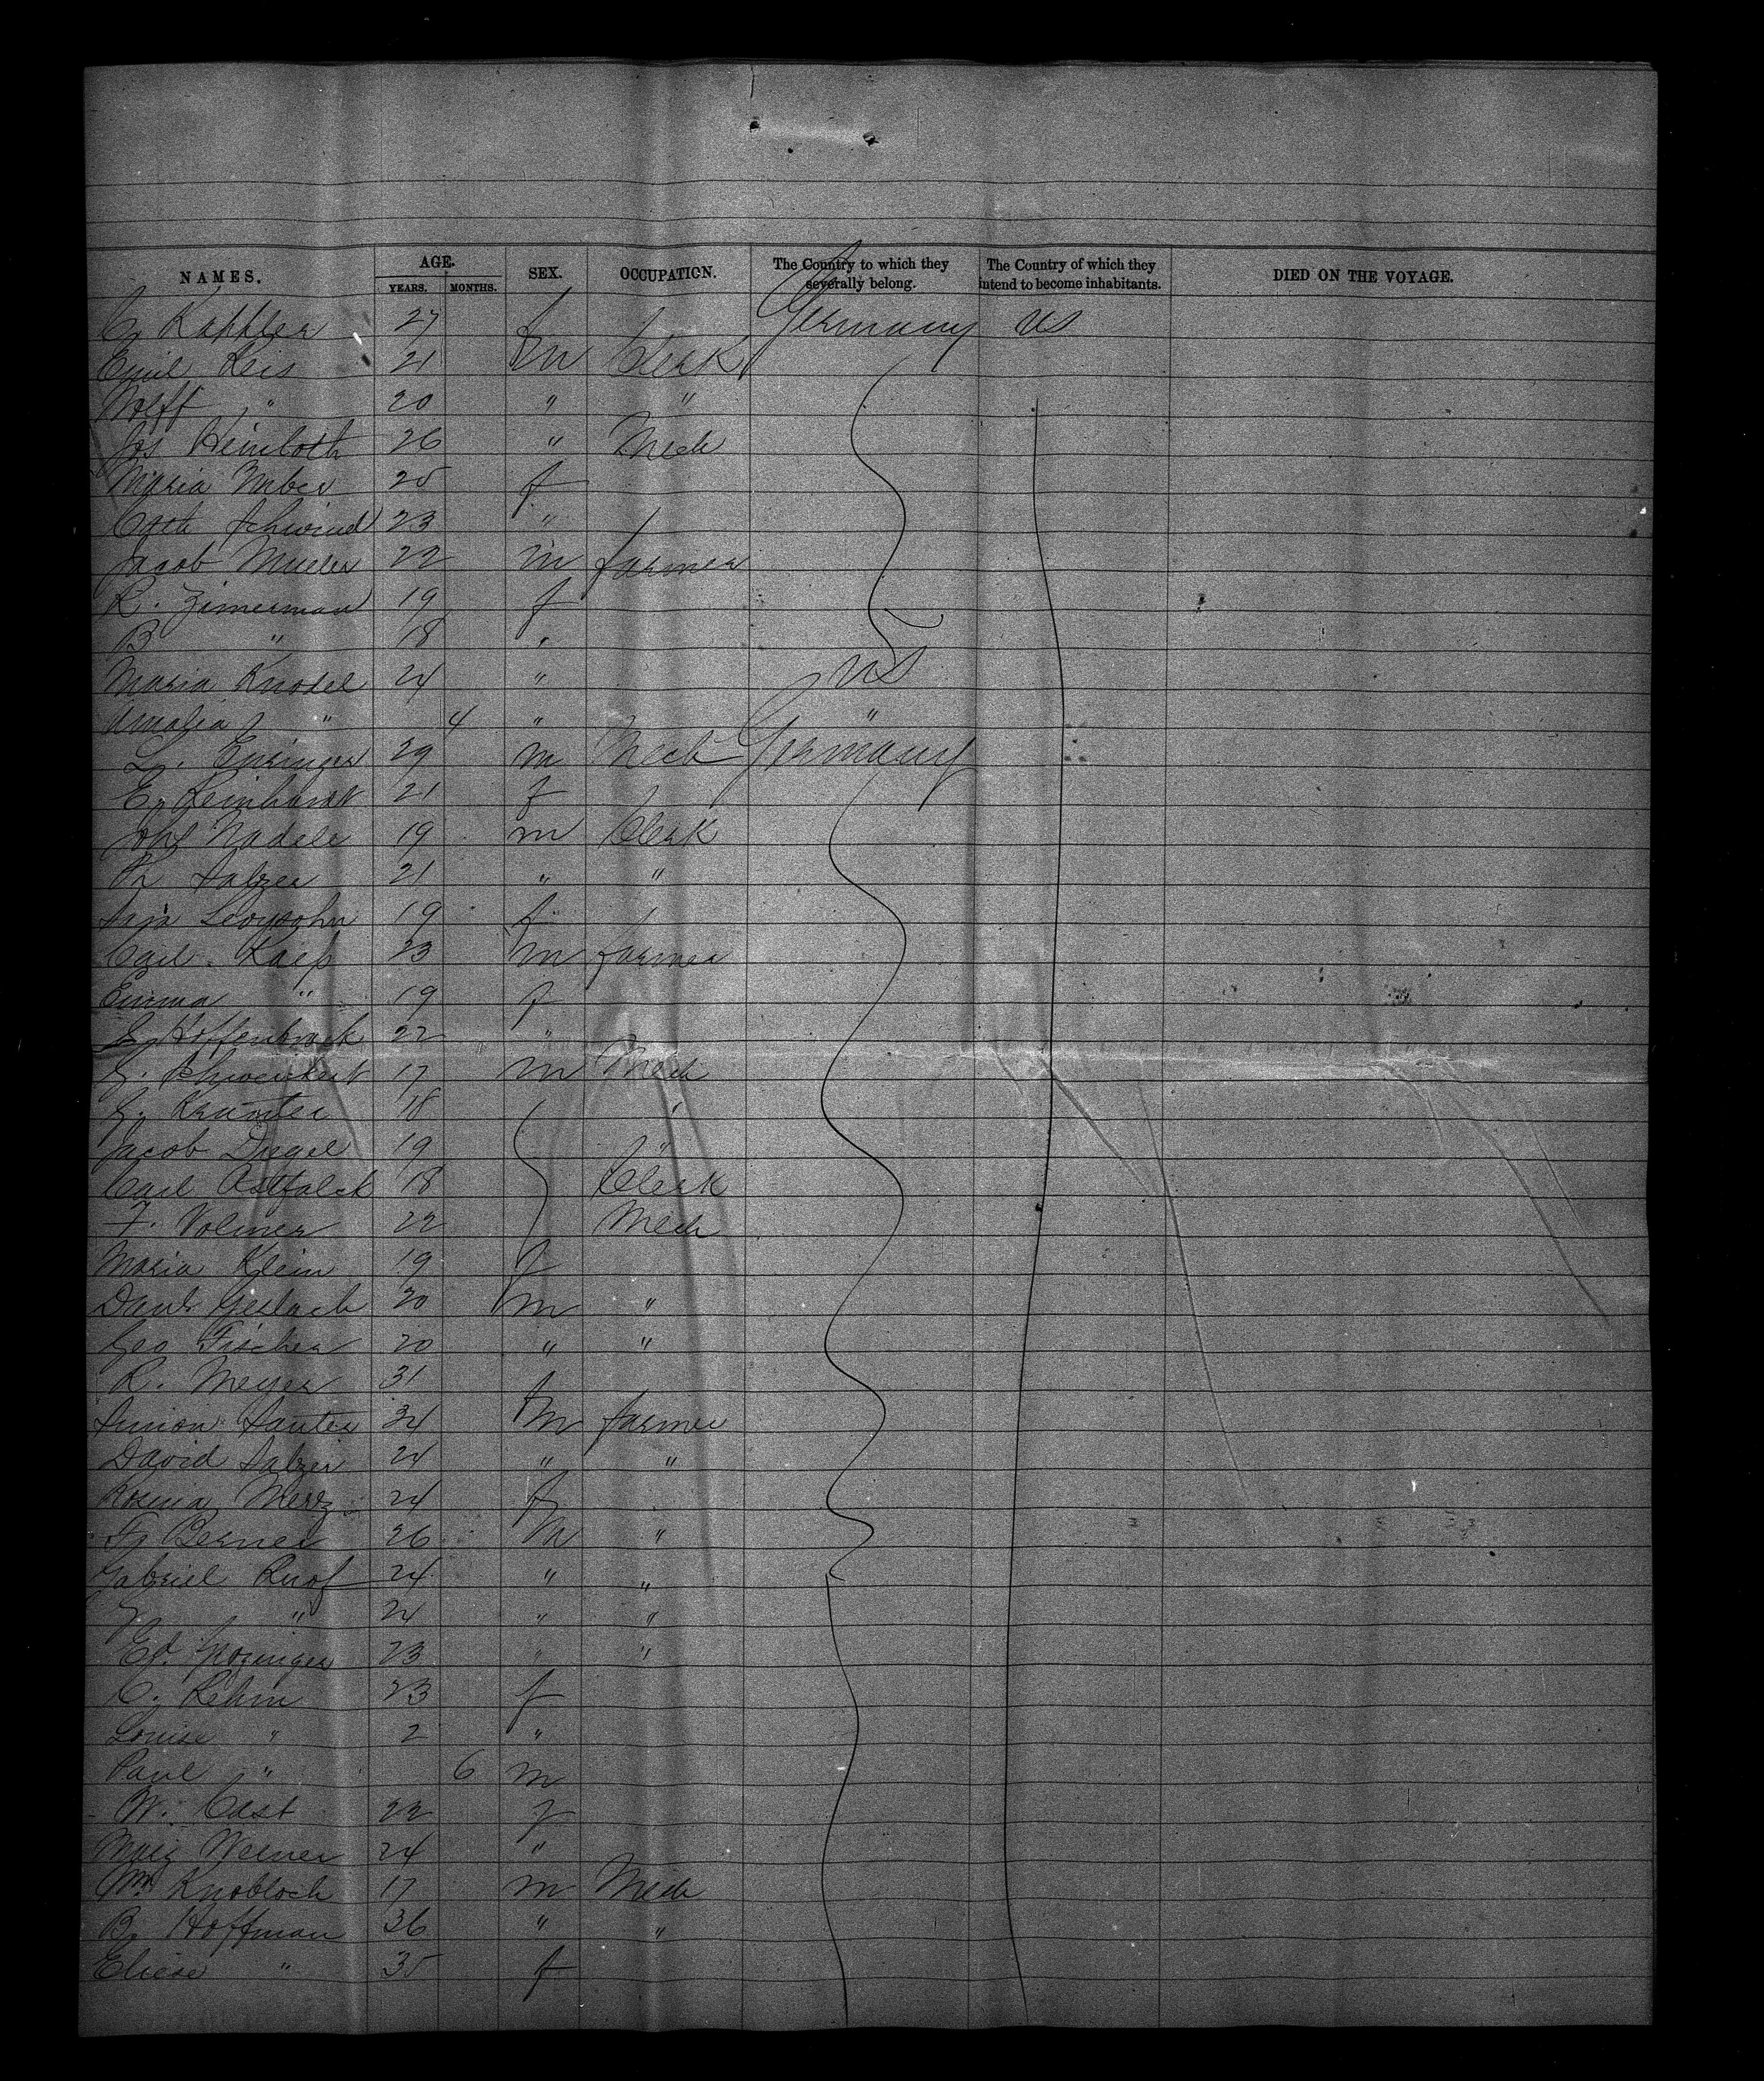 NAMES. AGE. SEX. OCCUPATION. The Country to which they severally belong. The Country of which they intend to become inhabitants. DIED ON THE VOYAGE.
YEARS. MONTHS.
C. Kappler 27 f Germany US
Emil Reis 21 m Clerk
Wolff " 20 " "
Jos Heimloth 26 " Mech
Maria Imber 25 f
Cath Schwind 23 "
Jacob Mueler 22 m farmer
R. Zimerman 19 f
B " 18 "
Maria Knodel 24 " US
Amalia " 4 " "
L. Ensinger 29 m Mech Germany
E. Reinhardt 21 f
Johs Nadele 19 m Clerk
Salzer 21 " "
Levysohn 19 f
Raiss 23 m farmer
Emma " 19 f
Hoffenbrack 22 "
G. Schweikert 17 m Mech
G. Krauter 18 "
Jacob Diegel 19 "
Carl Ostfalck 18 Clerk
F. Volmer 22 Mech
Maria Klein 19 f
Danl Gerlach 20 m "
Geo Fischer 20 " "
R. Meyer 31
Simon Sauter 34 m farmer
David Salzer 24 " "
Rosina Merz 24 f
Fr Berner 26 m "
Gabriel Knof 24 " "
" 24 " "
Ed. 23 " "
C. Rehm 23 f
Louise " 2 "
Paul " 6 m
W. Cast 22 f
Werner 24 "
Wm Knobloch 17 m Mech
B. Hoffman 36 " "
Eliese " 35 f